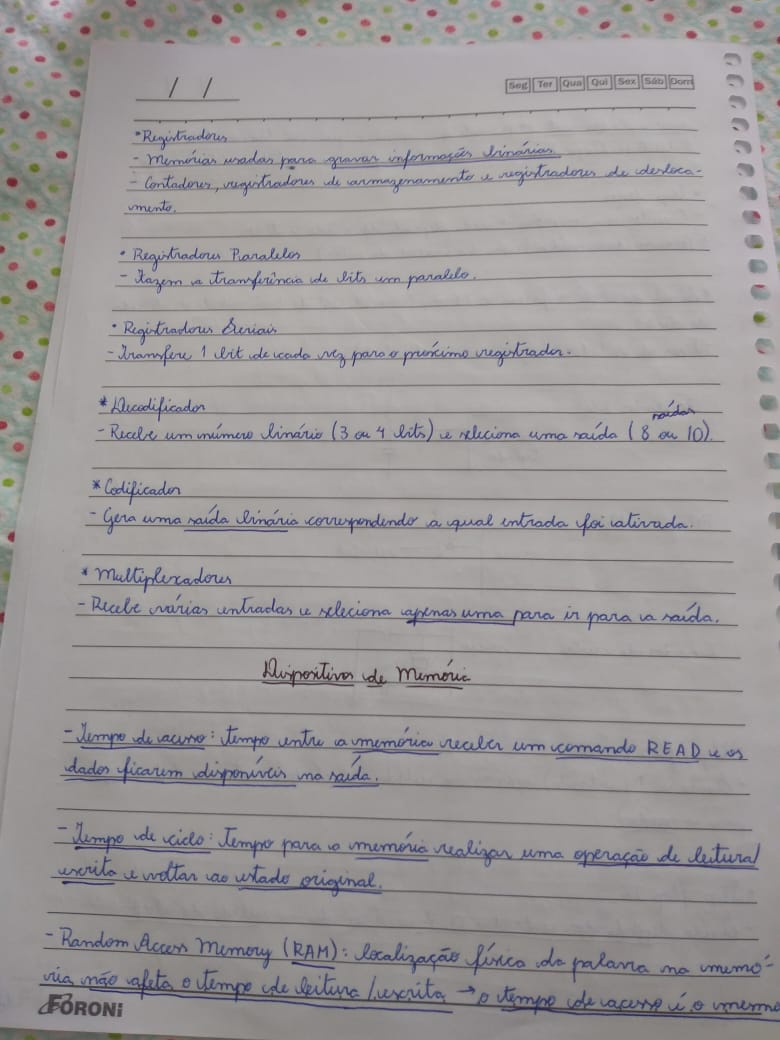 / /
Seg Ter Qua Qui Sex Sáb Dom
* Registradores
- Memórias usadas para gravar informações binárias
- Contadores, registradores de armazenamento e registradores de desloca-
mento.
• Registradores Paralelos
- Fazem a transferência de bits em paralelo.
• Registradores Seriais
- Transfere 1 bit de cada vez para o próximo registrador.
* Decodificador
saídas
- Recebe um número binário (3 ou 4 bits) e seleciona uma saída (8 ou 10).
* Codificador
- Gera uma saída binária correspondendo a qual entrada foi ativada.
* Multiplexadores
- Recebe várias entradas e seleciona apenas uma para ir para a saída.
Dispositivos de Memória
- Tempo de acesso: tempo entre a memória receber um comando READ e os
dados ficarem disponíveis na saída.
- Tempo de ciclo: Tempo para a memória realizar uma operação de leitura/
escrita e voltar ao estado original.
- Random Access Memory (RAM): localização física da palavra na memó-
ria não afeta o tempo de leitura/escrita → o tempo de acesso é o mesmo
FORONI